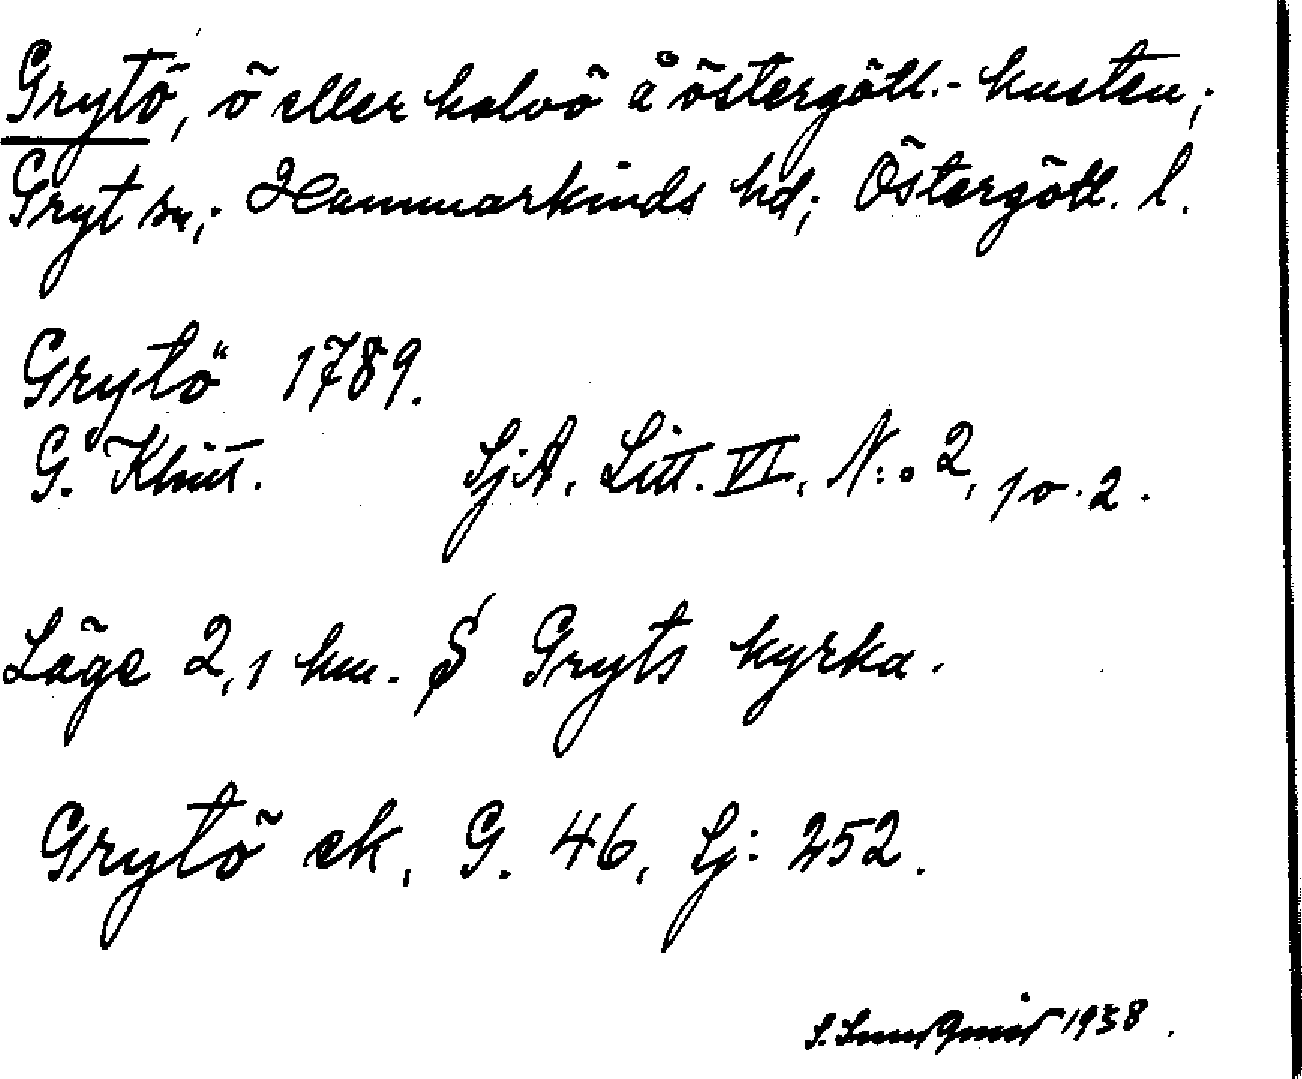 Grytö, ö eller halvö å östergötl.-kusten;
Gryt sn; Hammarkinds hd; Östergötl. l.
Grytö 1789.
G. Klint. SjA. Litt. VI. N:o 2, 10.2.
Läge 2,1 km. S Gryts kyrka.
Grytö ek, G. 46, Sj: 252.
S. Lundqvist 1938.